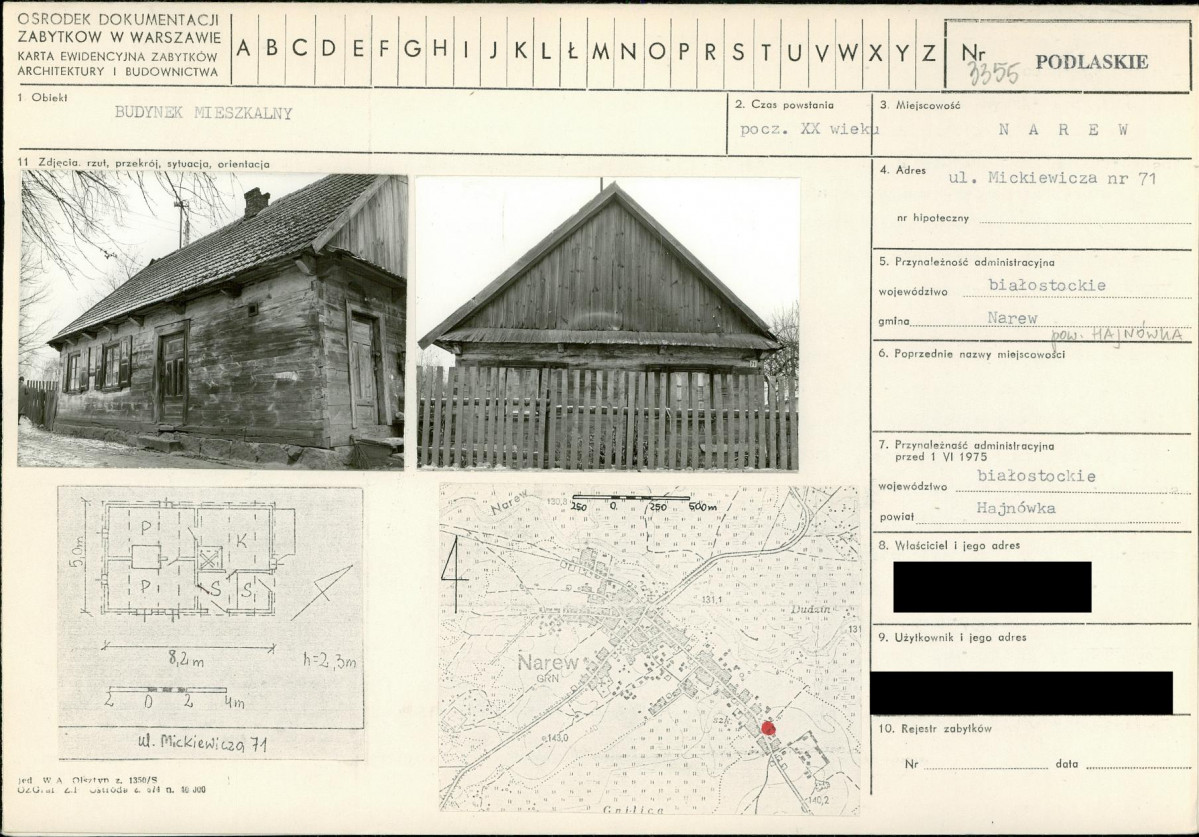 OSRODEK DOKUMENTACJI
ZABYTKÓW W WARSZAWIE
KARTA EWIDENCYJNA ZABYTKÓW
ARCHITEKTURY I BUDOWNICTWA
A B C D E F G H I J K L Ł M N O P R S T U V W X Y Z
Nr 3355 PODLASKIE
1 Obiekt
BUDYNEK MIESZKALNY
2. Czas powstania
pocz. XX wieku
3. Miejscowość
N A R E W
11 Zdjęcia. rzut, przekrój, sytuacja, orientacja
4. Adres ul. Mickiewicza nr 71
nr hipoteczny
5. Przynależność administracyjna
województwo białostockie
gmina Narew
pow. HAJNÓWKA
6. Poprzednie nazwy miejscowości
7. Przynależność administracyjna
przed 1 VI 1975
województwo białostockie
powiat Hajnówka
8. Właściciel i jego adres
9. Użytkownik i jego adres
10. Rejestr zabytków
Nr data
P
K
P
S
S
5,0m
8,2m
h=2,3m
2 0 2 4m
ul. Mickiewicza 71
Narew
130,8
250 0. 250 500m
131,1
Dudzin
131
Narew
GRN
szk.
143,0
140,2
Gnilica